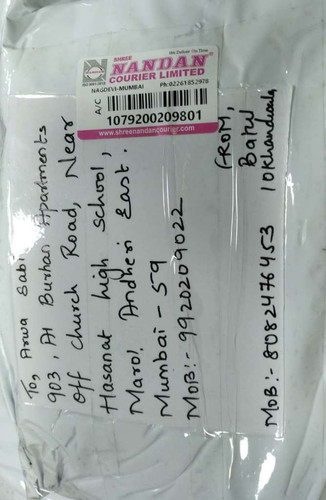 SHREE
We Deliver On Time
NANDAN
COURIER LIMITED
NAGDEVI-MUMBAI Ph:02261852978
A/C
1079200209801
www.shreenandancourier.com
To, Arwa Sabi
903, Al Burhan Apartments
Off Church Road, Near
Hasanat high school,
Marol Andheri East.
Mumbai - 59
MOB:- 9920209022
FROM,
Batul
MOB:- 8082476453